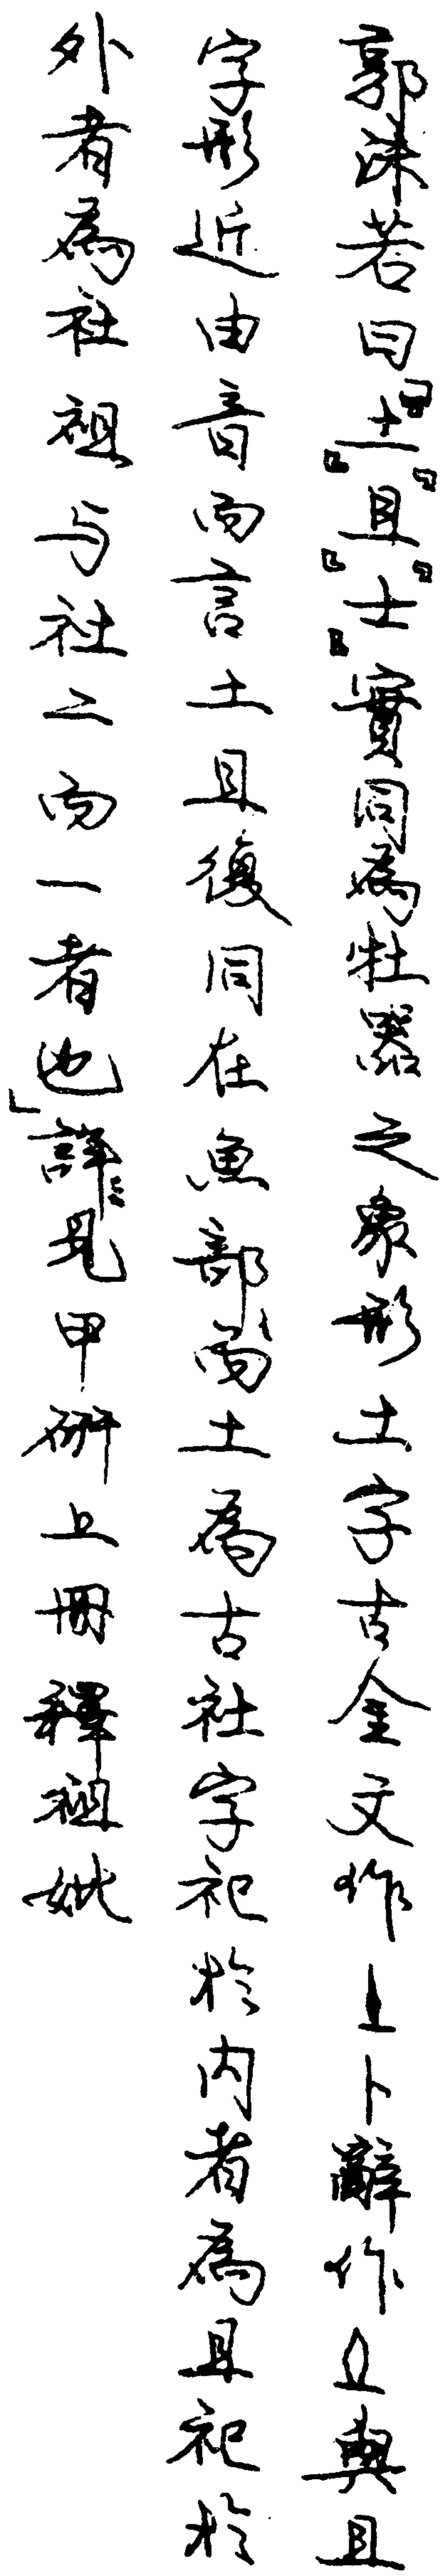 郭沫若曰「『土』『且』『士』實同為牡器之象形土字古金文作卜辭作與且
字形近由音而言土且復同在魚部而土為古社字祀於内者為且祀於
外者為社祖与社二而一者也」詳見甲研上冊釋祖妣